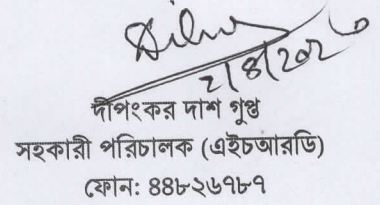 দীপংকর দাশ গুপ্ত
সহকারী পরিচালক (এইচআরডি)
ফোন: ৪৪৮২৬৭৮৭